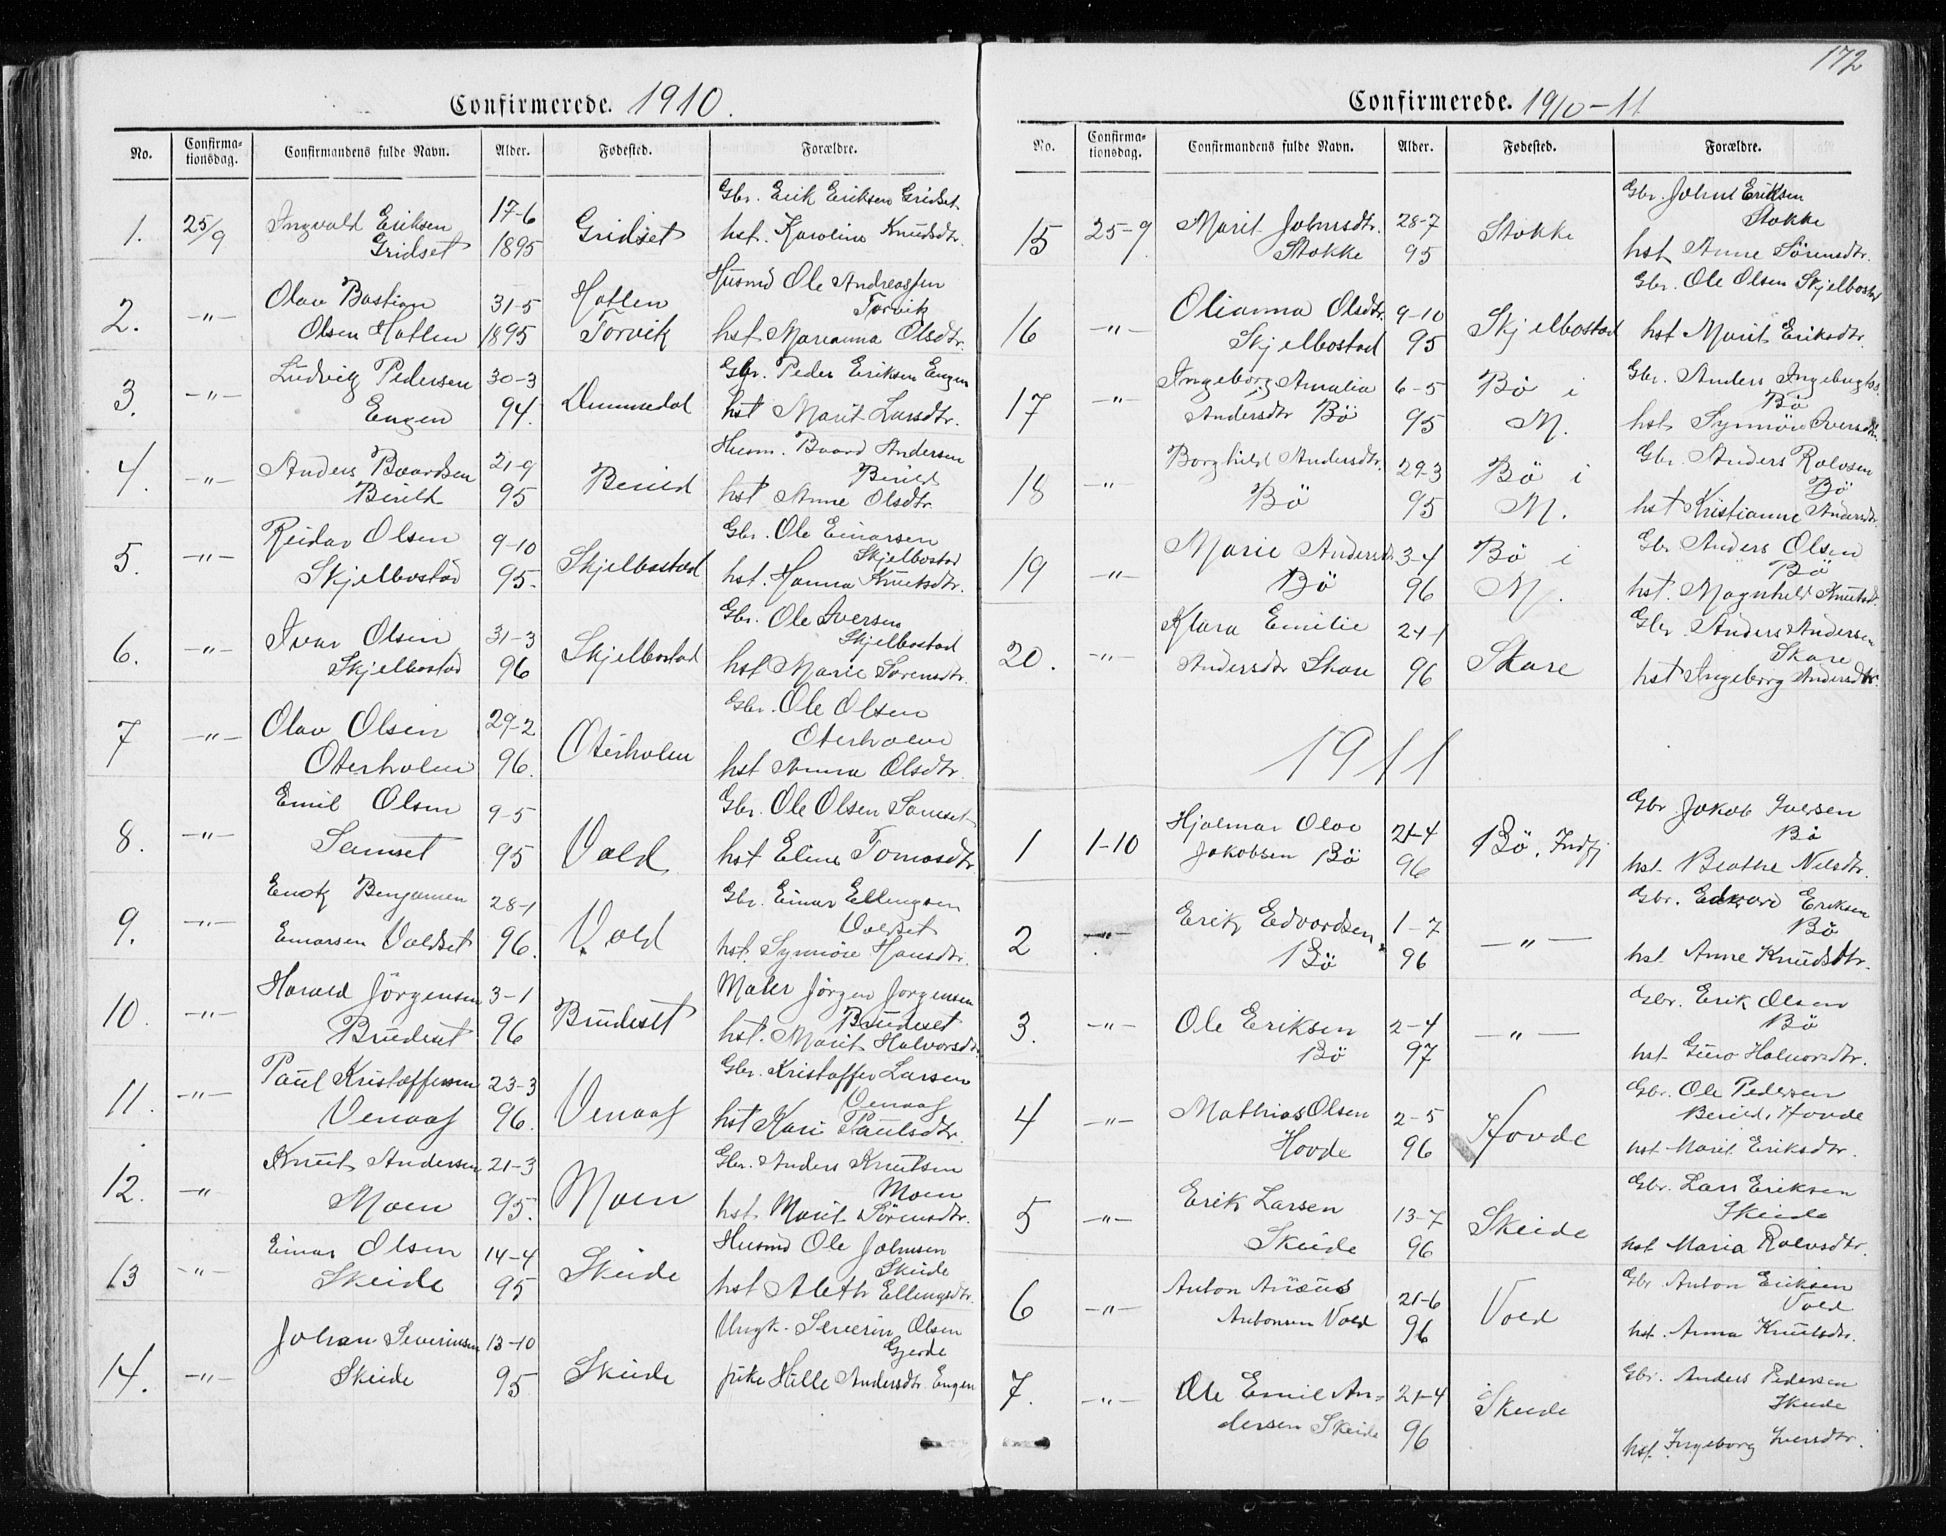 Confirmerede. 1910.
No. Confirma-tionsdag. Confirmandens fulde Navn. Alder. Fødested. Forældre.
1. 25/9 Ingvald Eriksen 17-6 Gridset Gbr. Erik Eriksen Gridset
Gridset 1895 hst. Karoline Knudsdtr.
2. -"- Olav Bastian 31-5 Hatlen Husmd Ole Andreassen
Torvik
Olsen Hatlen 1895 Torvik hst Marianna Olsdtr.
3. -"- Ludvig Pedersen 30-3 Gbr. Peder Eriksen Engen
Engen 94. hst Marit Larsdtr.
4. -"- Anders Baardsen 21-9 Berild Husm. Baard Andersen
Berild
Berild 95 hst Anne Olsdtr.
5. -"- Reidar Olsen 9-10 Skjelbostad Gbr. Ole Einarsen
Skjelbostad
Skjelbostad 95. hst. Hanna Knutsdtr.
6. -"- Ivar Olsen 31-3 Skjelbostad Gbr. Ole Iversen
Skjelbostad
Skjelbostad 96 hst Marie Sørensdtr.
7 -"- Olav Olsen 29-2 Oterholm Gbr. Ole Olsen
Oterholm
Oterholm 96. hst Anna Olsdtr.
8. -"- Emil Olsen 9-5 Vold Gbr. Ole Olsen Samset
Samset 95 hst Eline Tomasdtr
9. -"- Enok Benjamin 28-1 Vold Gbr. Einar Ellingsen
Voldset
Einarsen Voldset 96. hst. Synnøve Hansdtr.
10. -"- Harald Jörgensen 3-1 Brudeset Maler Jörgen Jorgensen
Brudeset
Brudeset 96 hst. Marit Halvorsdtr
11. -"- Paul Kristoffersen 23-3 Venaas Gbr. Kristoffer Larsen
Venaas
Venaas 96. hst Kari Paulsdtr.
12. -"- Knut Andersen 21-3 Moen Gbr. Anders Knutsen
Moen
Moen 95. hst Marit Sörensdtr.
13 -"- Einar Olsen 14-4 Skeide Husmd Ole Johnsen
Skeide
Skeide 95 hst Aleth Ellingsdtr.
14. -"- Johan Severinsen 13-10 Skeide Ungk. Severin Olsen
Gjerde
Skeide 95 pike Hille Andersdtr. Engen
172
Confirmerede. 1910-11
No. Confirma-tionsdag. Confirmandens fulde Navn. Alder. Fødested. Forældre.
15 25-9 Marit Johnsdtr. 28-7 Stokke Gbr. John Eriksen
Stokke
Stokke 95 hst Anne Sörensdtr.
16 -"- Olianna Olsdtr. 9-10 Skjelbostad Gbr. Ole Olsen Skjelbostad
Skjelbostad 95 hst Marit Eriksdtr.
17 -"- Ingeborg Amalia 6-5 Bö i Gbr. Anders
Bö
Andersdtr Bö 95 M. hst Synnöve Iversdtr.
18 -"- Borghild Andersdtr. 29-3 Bö i Gbr. Anders Rolvsen
Bö
Bö 95 M. hst Kristianne Andersdtr.
19 -"- Marie Andersdtr 3-4 Bö i Gbr Anders Olsen
Bö
Bö 96 M. hst. Magnhild Knutsdtr.
20. -"- Klara Emilie 24-1 Skare Gbr. Anders Andersen
Skare
Andersdtr Skare 96 hst Ingeborg Andersdtr.
1911
1 1-10 Hjalmar Olav 21-4 Bö, Indfj Gbr Jakob Iversen
Bö
Jakobsen Bö 96 hst. Beathe Nilsdtr.
2 -"- Erik Edvardsen 1-7 -"- Gbr. Edvard Eriksen
Bö
Bö 96 hst. Anne Knudsdtr.
3. -"- Ole Eriksen 2-4 -"- Gbr. Erik Olsen
Bö
Bö 97 hst. Guro Halvorsdtr.
4 -"- Mathias Olsen 2-5 Hovde Gbr. Ole Pedersen
Berild, Hovde
Hovde 96 hst Marit Eriksdtr.
5 -"- Erik Larsen 13-7 Skeide Gbr. Lars Eriksen
Skeide
Skeide 96 hst Maria Rolvsdtr.
6 -"- Anton 21-6 Vold Gbr Anton Eriksen
Vold
Antonsen Vold 96 hst. Anna Knutsdtr.
7. -"- Ole Emil An- 21-4 Skeide Gbr. Anders Pedersen
Skeide
dersen Skeide 96 hst. Ingeborg Iversdtr.